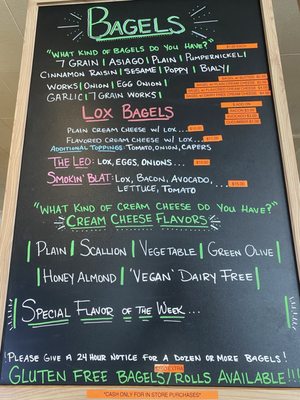 BAGELS
"WHAT KIND OF BAGELS DO YOU HAVE?"
7 GRAIN | ASIAGO | PLAIN | PUMPERNICKEL |
CINNAMON RAISIN | SESAME | POPPY | BIALY |
WORKS | ONION | EGG ONION |
GARLIC | 7 GRAIN WORKS |
LOX BAGELS
PLAIN CREAM CHEESE W/ LOX...
FLAVORED CREAM CHEESE W/ LOX...
ADDITIONAL TOPPINGS: TOMATO, ONION, CAPERS
THE LEO: LOX, EGGS, ONIONS...
SMOKIN' BLAT: LOX, BACON, AVOCADO,
LETTUCE, TOMATO...
"WHAT KIND OF CREAM CHEESE DO YOU HAVE?"
CREAM CHEESE FLAVORS
| PLAIN | SCALLION | VEGETABLE | GREEN OLIVE |
| HONEY ALMOND | 'VEGAN' DAIRY FREE |
SPECIAL FLAVOR OF THE WEEK...
!PLEASE GIVE A 24 HOUR NOTICE FOR A DOZEN OR MORE BAGELS!
GLUTEN FREE BAGELS/ROLLS AVAILABLE!!!
*CASH ONLY FOR IN STORE PURCHASES*